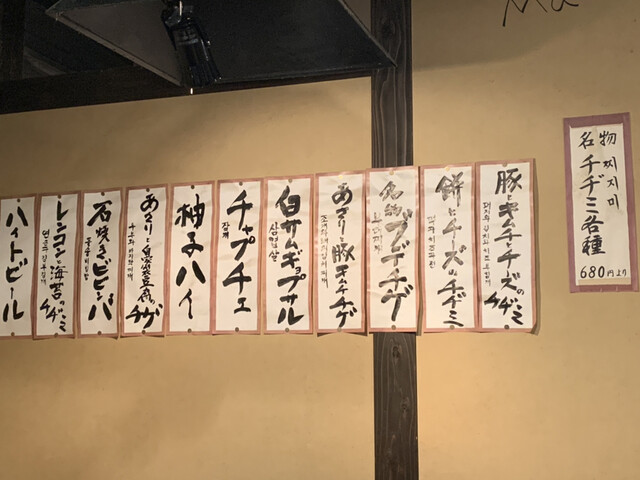 名物 찌지미
チヂミ各種
680円より
豚とキムチとチーズのチヂミ
餅とチーズのチヂミ
名物 プデチゲ
あさりと豚キムチチゲ
白サムギョプサル
삼겹살
チャプチェ
잡채
柚子ハイ
あさりと臭豆腐チゲ
石焼きビビンバ
レンコンと海苔のチヂミ
ハイトビール